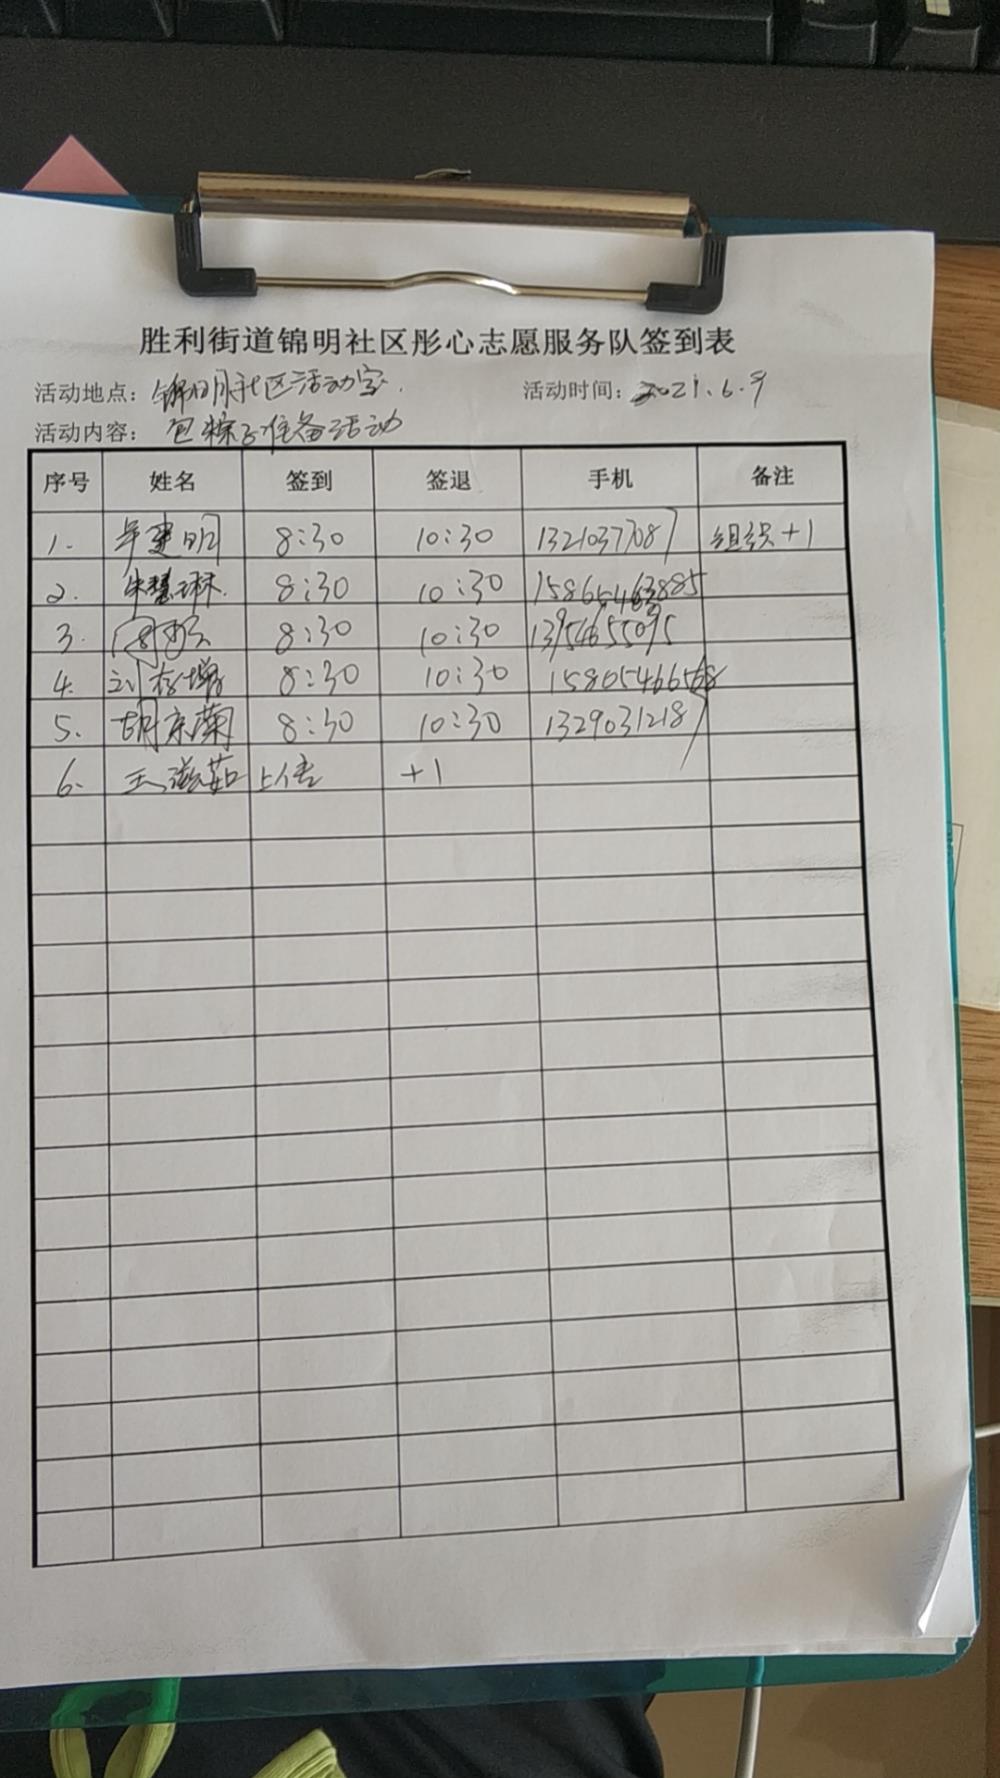 胜利街道锦明社区彤心志愿服务队签到表
活动地点：锦明社区活动室. 活动时间：2021.6.9
活动内容：包粽子准备活动
序号 姓名 签到 签退 手机 备注
1. 牟建明 8:30 10:30 13210377087 组织+1
2. 朱慧琳 8:30 10:30 15865463885
3. 8:30 10:30 13954655095
4. 刘存增 8:30 10:30 15805466568
5. 胡京菊 8:30 10:30 13290312187
6. 王滋茹 上传 +1